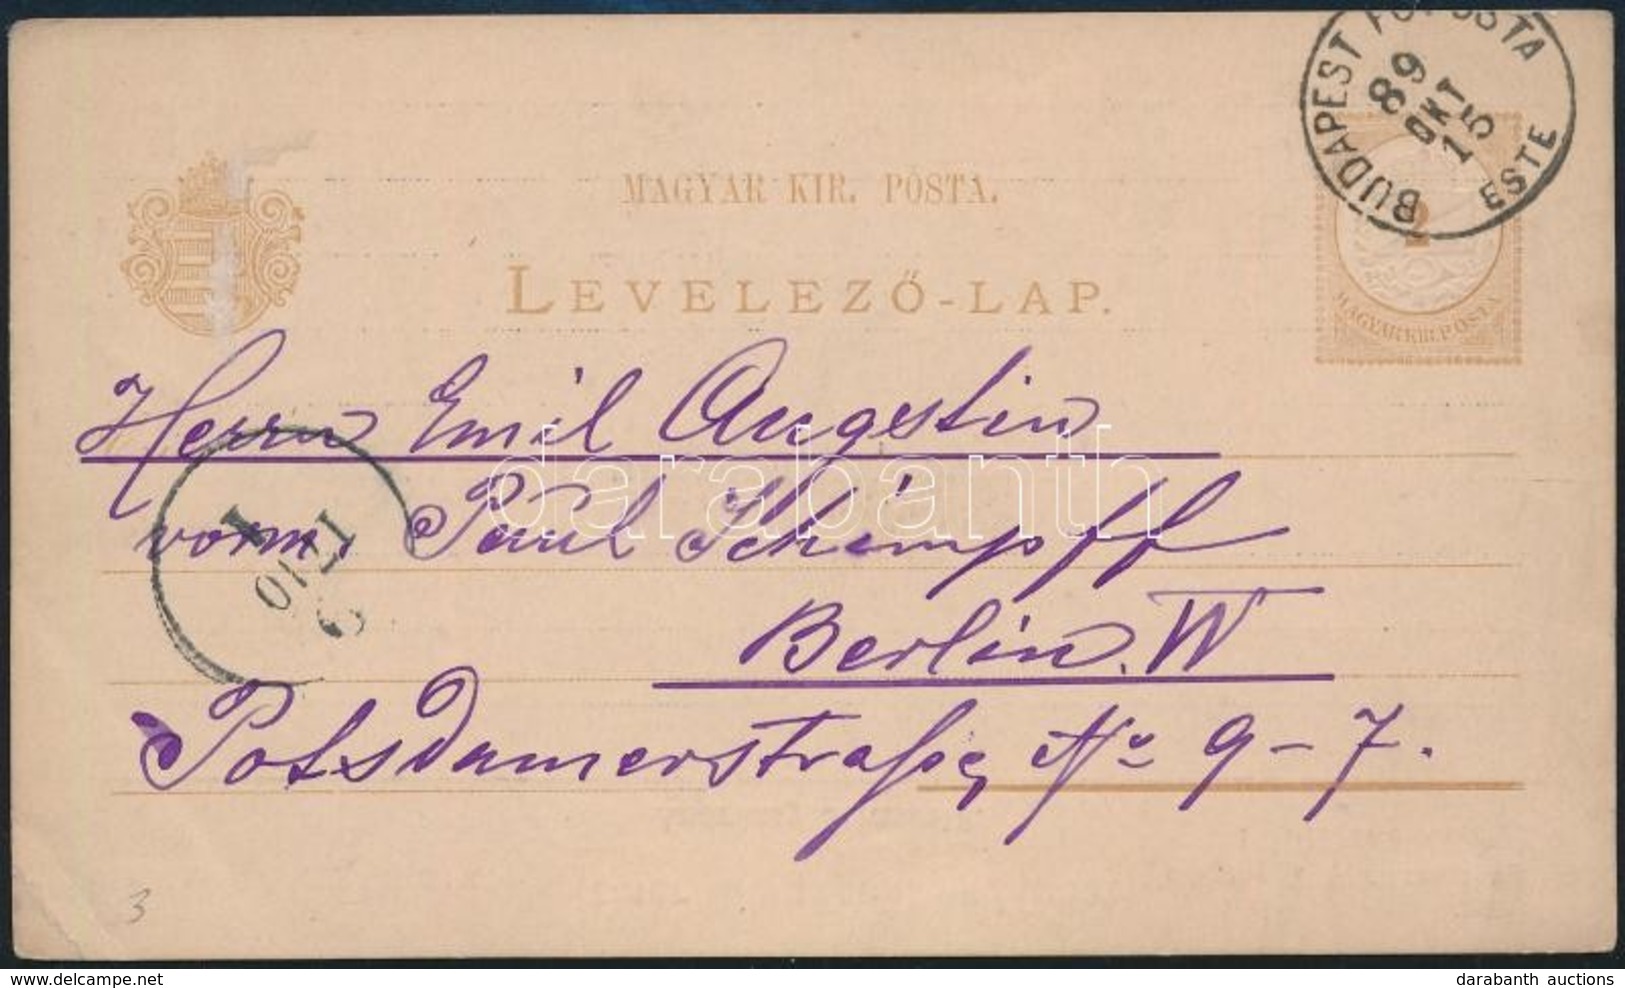 BUDAPEST FŐPOSTA
89
OKT
15
ESTE
MAGYAR KIR. POSTA.
LEVELEZŐ-LAP.
2
MAGYAR KIR. POSTA
Herrn Emil Augustin
vorm. Paul Schimpff
Berlin. W
Potsdamerstraße No 9-7.
1
17
10
9
3
darabanth
darabanth auctions